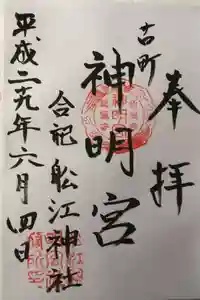 奉拝
古町
神明宮
合祀 舩江神社
平成二十九年六月四日